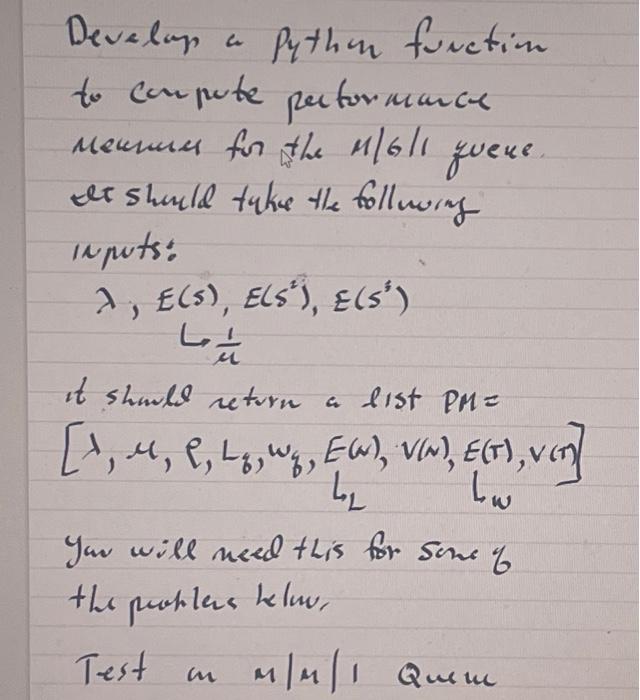 Develop a Python function
to compute performance
measures for the M/G/1 queue.
It should take the following
inputs:
λ, E(S), E(S²), E(S³)
↳ 1/μ
it should return a list PM =
[λ, μ, ρ, Lq, Wq, E(N), V(N), E(T), V(T)]
↳L ↳W
You will need this for some of
the problems below.
Test on M/M/1 Queue